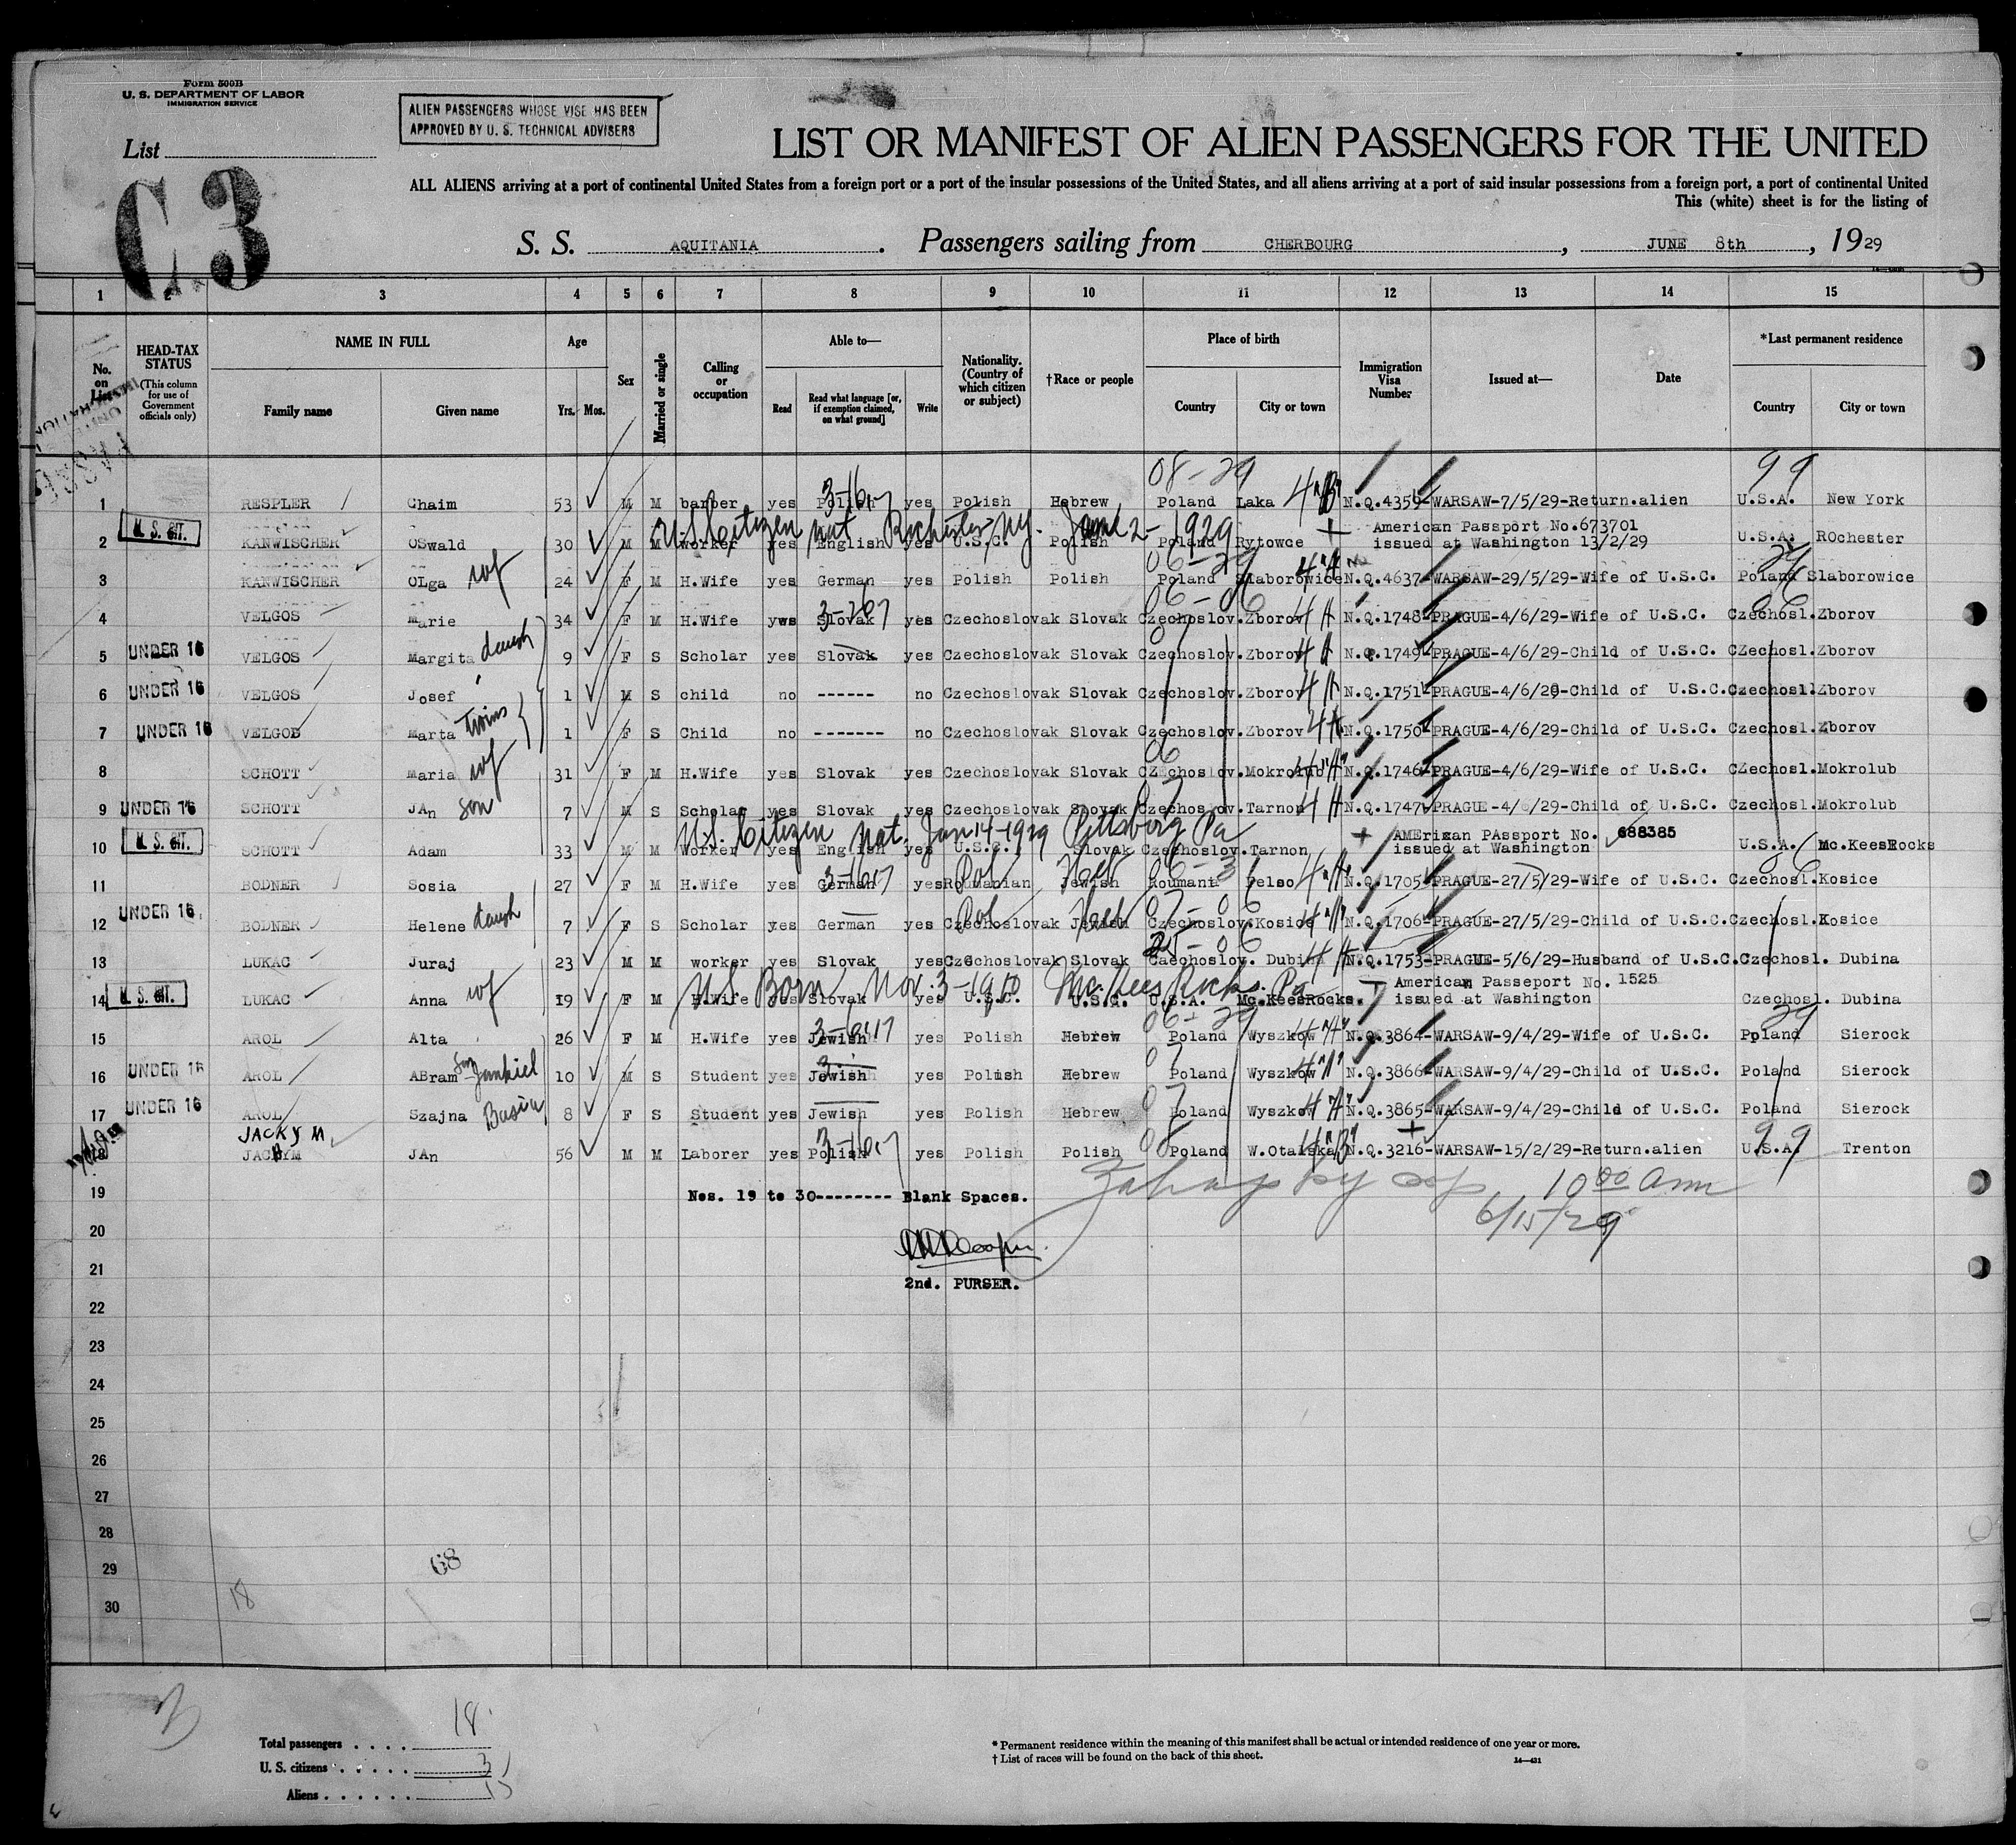 Form 500B
U. S. DEPARTMENT OF LABOR
IMMIGRATION SERVICE
ALIEN PASSENGERS WHOSE VISE HAS BEEN
APPROVED BY U. S. TECHNICAL ADVISERS
List
C 3
LIST OR MANIFEST OF ALIEN PASSENGERS FOR THE UNITED
ALL ALIENS arriving at a port of continental United States from a foreign port or a port of the insular possessions of the United States, and all aliens arriving at a port of said insular possessions from a foreign port, a port of continental United
This (white) sheet is for the listing of
S. S. AQUITANIA. Passengers sailing from CHERBOURG, JUNE 8th, 1929
1 2 3 4 5 6 7 8 9 10 11 12 13 14 15
No. on List
HEAD-TAX STATUS (This column for use of Government officials only)
NAME IN FULL Family name Given name
Age Yrs. Mos.
Sex
Married or single
Calling or occupation
Able to— Read Read what language [or, if exemption claimed, on what ground] Write
Nationality. (Country of which citizen or subject)
†Race or people
Place of birth Country City or town
Immigration Visa Number
Issued at—
Date
*Last permanent residence Country City or town
08-29 99
1 RESPLER Chaim 53 M M barber yes Polish yes Polish Hebrew Poland Laka N.Q.4359-WARSAW-7/5/29-Return.alien U.S.A. New York
U.S. Citizen nat Rochester NY. June 2-1929
2 U. S. CIT. KANWISCHER OSwald 30 M M worker yes English yes U.S.C. Polish Poland Rytowce American Passport No.673701 issued at Washington 13/2/29 U.S.A. ROchester
3 KANWISCHER OLga wf 24 F M H.Wife yes German yes Polish Polish Poland Slaborowice N.Q.4637-WARSAW-29/5/29-Wife of U.S.C. Poland Slaborowice
4 VELGOS Marie 34 F M H.Wife yws Slovak yes Czechoslovak Slovak Czechoslov.Zborov N.Q.1748-PRAGUE-4/6/29-Wife of U.S.C. Czechosl.Zborov
5 UNDER 16 VELGOS Margita daugh 9 F S Scholar yes Slovak yes Czechoslovak Slovak Czechoslov.Zborov N.Q.1749-PRAGUE-4/6/29-Child of U.S.C. Czechosl.Zborov
6 UNDER 16 VELGOS Josef 1 M S child no ------ no Czechoslovak Slovak Czechoslov.Zborov N.Q.1751-PRAGUE-4/6/29-Child of U.S.C.Czechosl.Zborov
7 UNDER 16 VELGOS Marta twins 1 F S Child no ------- no Czechoslovak Slovak Czechoslov.Zborov N.Q.1750-PRAGUE-4/6/29-Child of U.S.C. Czechosl.Zborov
8 SCHOTT Maria wf 31 F M H.Wife yes Slovak yes Czechoslovak Slovak CZechoslov.Mokrolub N.Q.1746-PRAGUE-4/6/29-Wife of U.S.C. CZechosl.Mokrolub
9 UNDER 16 SCHOTT JAn son 7 M S Scholar yes Slovak yes Czechoslovak Slovak Czechoslov.Tarnon N.Q.1747-PRAGUE-4/6/29-Child of U.S.C. Czechosl.Mokrolub
U.S. Citizen Nat. Jan 14-1929 Pittsburg Pa
10 U. S. CIT. SCHOTT Adam 33 M M Worker yes English yes U.S.C. Slovak Czechoslov.Tarnon AMErizan PAssport No. 688385 issued at Washington U.S.A. Mc.KeesRocks
11 BODNER Sosia 27 F M H.Wife yes German yes Roumanian Jewish Roumania Felso N.Q.1705-PRAGUE-27/5/29-Wife of U.S.C. Czechosl.Kosice
12 UNDER 16 BODNER Helene daugh 7 F S Scholar yes German yes Czechoslovak Jewish Czechoslov.Kosice N.Q.1706-PRAGUE-27/5/29-Child of U.S.C.Czechosl.Kosice
13 LUKAC Juraj 23 M M worker yes Slovak yes Czechoslovak Slovak Czechoslov. Dubina N.Q.1753-PRAGUE-5/6/29-Husband of U.S.C.Czechosl. Dubina
U.S. Born Nov. 3-1910 Mc.Kees Rocks. Pa
14 U. S. CIT. LUKAC Anna wf 19 F M H.Wife yes Slovak yes U.S.C. U.S.C. U.S.A. Mc.KeesRocks. American Passeport No. 1525 issued at Washington Czechosl. Dubina
15 AROL Alta 26 F M H.Wife yes Jewish yes Polish Hebrew Poland Wyszkow N.Q.3864-WARSAW-9/4/29-Wife of U.S.C. Poland Sierock
16 UNDER 16 AROL ABram Jankiel son 10 M S Student yes Jewish yes Polish Hebrew Poland Wyszkow N.Q.3866-WARSAW-9/4/29-Child of U.S.C. Poland Sierock
17 UNDER 16 AROL Szajna Basia 8 F S Student yes Jewish yes Polish Hebrew Poland Wyszkow N.Q.3865-WARSAW-9/4/29-Child of U.S.C. Poland Sierock
JACKYM
18 JACHYM JAn 56 M M Laborer yes Polish yes Polish Polish Poland N.Q.3216-WARSAW-15/2/29-Return.alien U.S.A. Trenton
19 Nos. 19 to 30-------- Blank Spaces. 10 00 am
6/15/29
20
21 2nd. PURSER.
22
23
24
25
26
27
28
29 68
30 18
Total passengers . . . . 18
U. S. citizens . . . . . 3
Aliens . . . . . . 15
* Permanent residence within the meaning of this manifest shall be actual or intended residence of one year or more.
† List of races will be found on the back of this sheet.
14—431